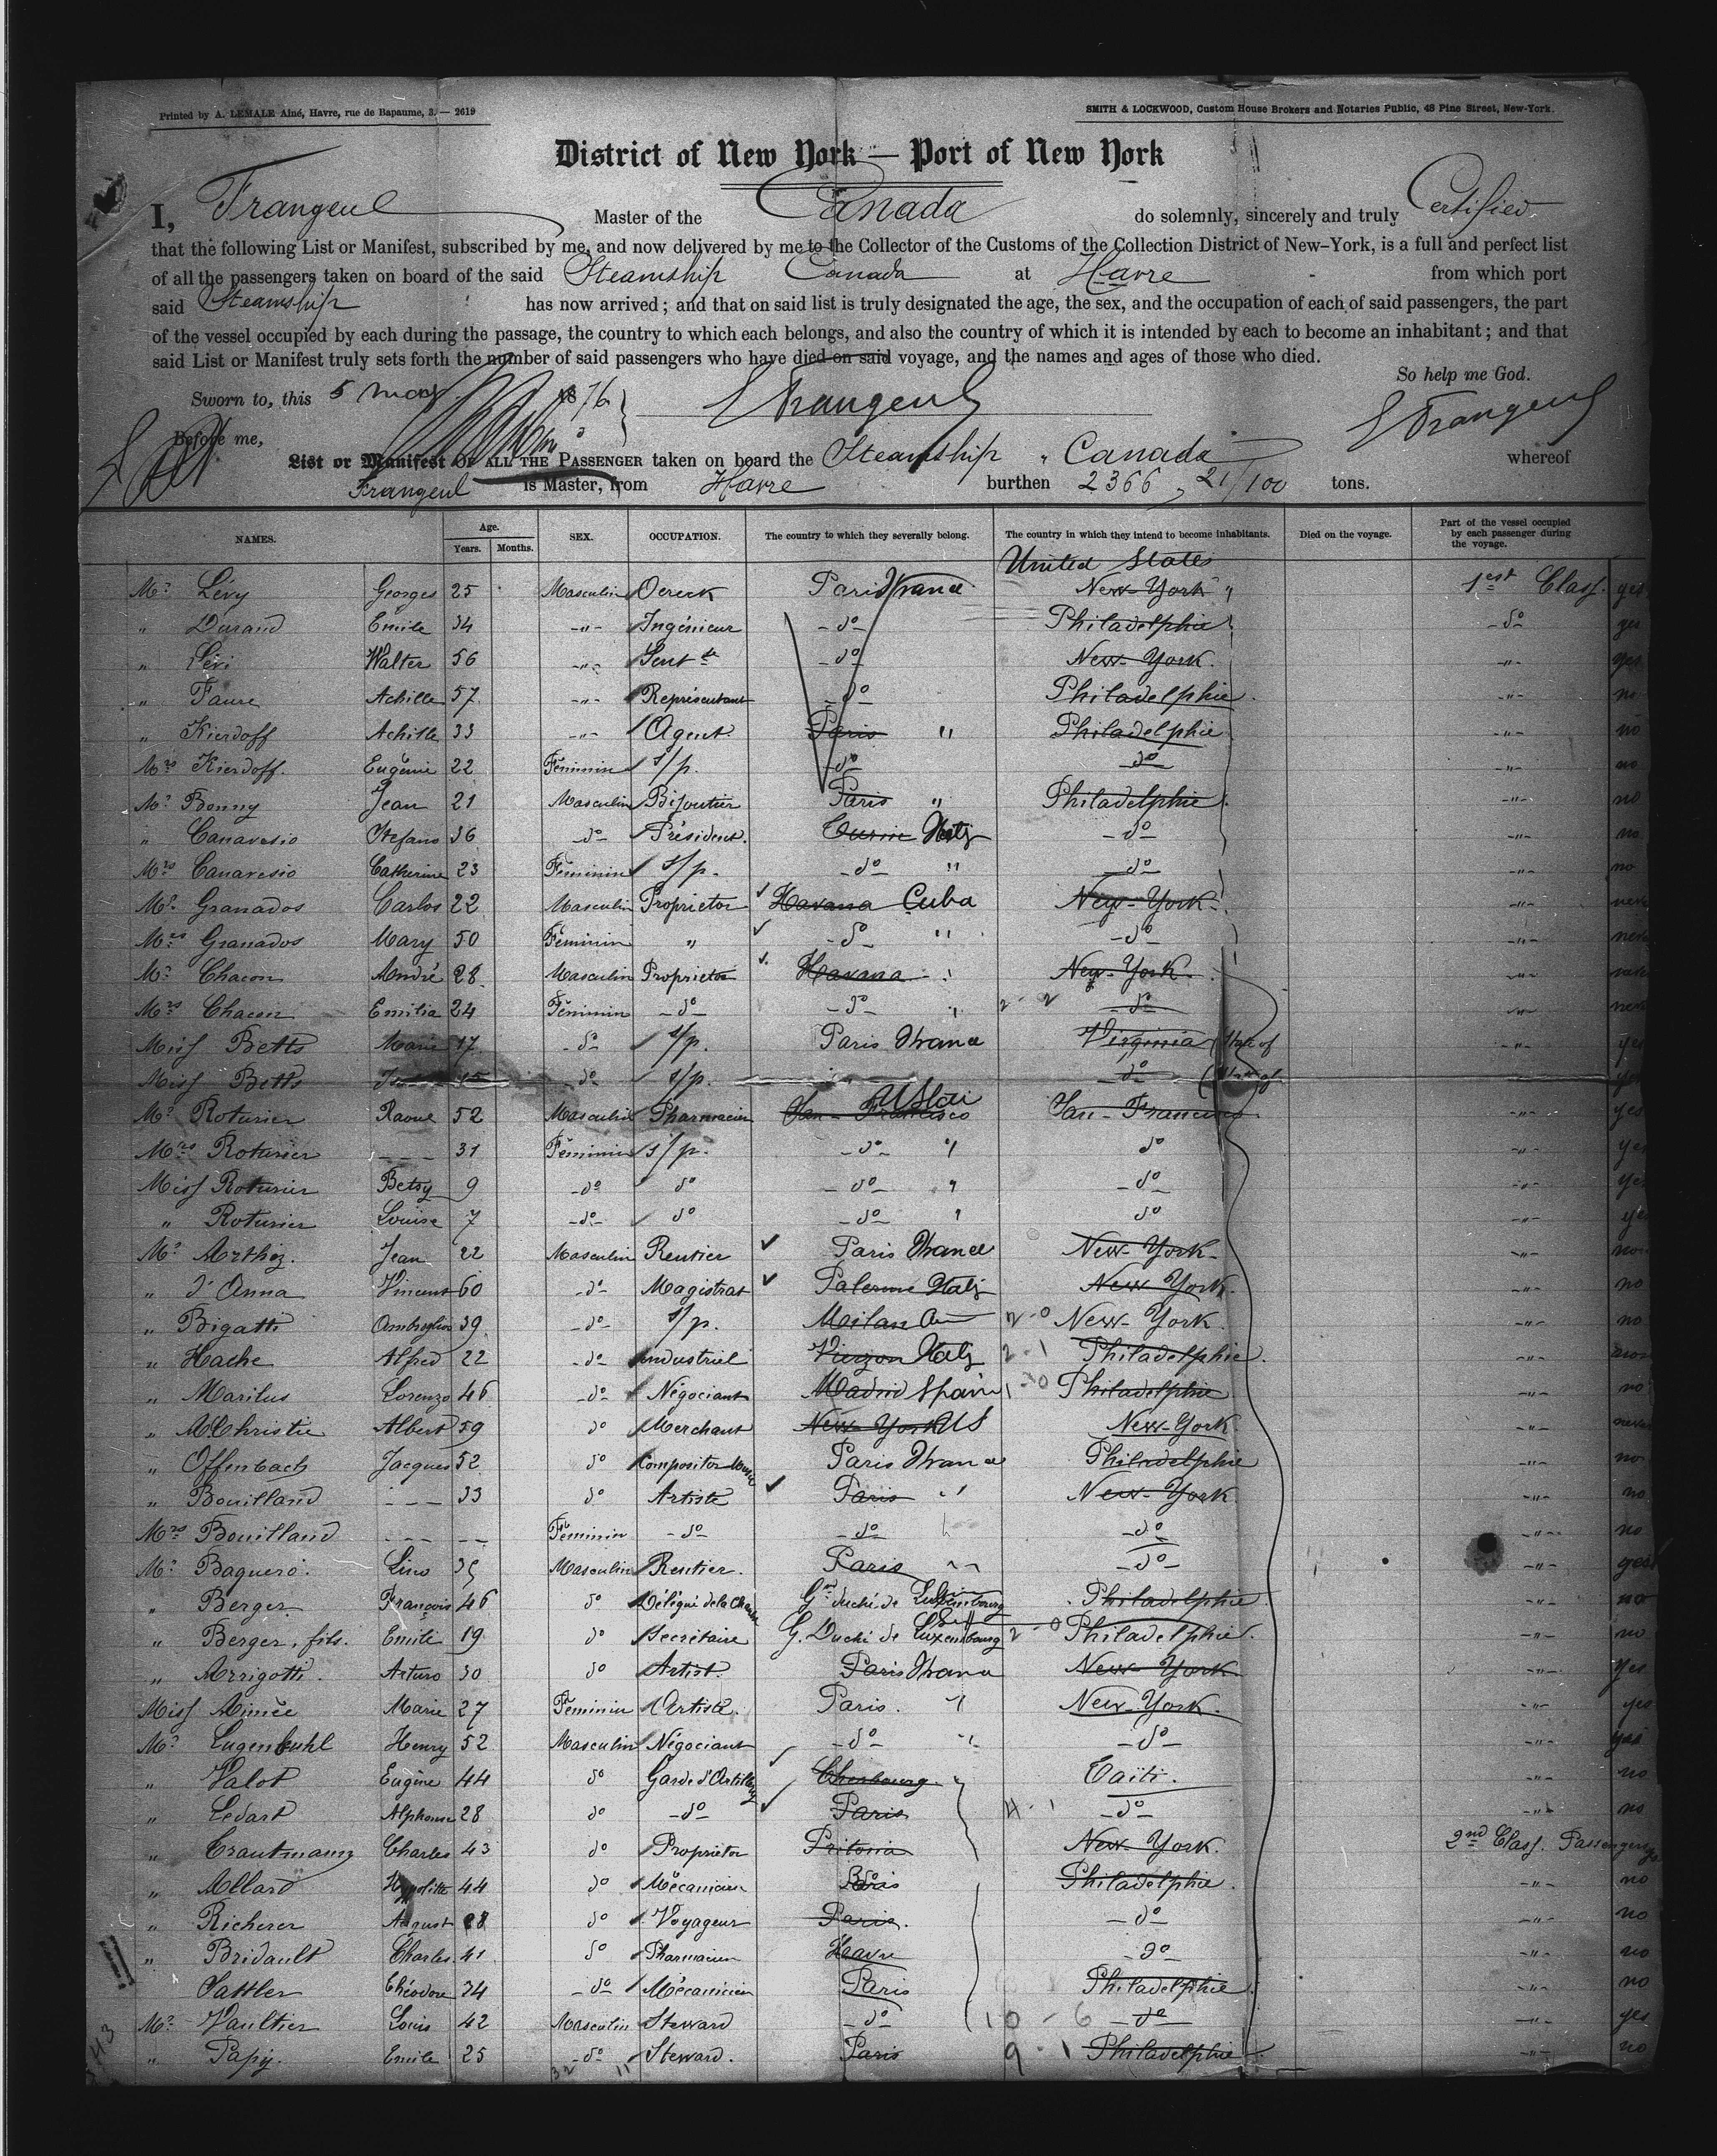 Printed by A. LEMALE Aîné, Havre, rue de Bapaume, 3. — 2619
SMITH & LOCKWOOD, Custom House Brokers and Notaries Public, 48 Pine Street, New-York.
District of New York — Port of New York
I, Frangeul Master of the Canada do solemnly, sincerely and truly Certified
that the following List or Manifest, subscribed by me, and now delivered by me to the Collector of the Customs of the Collection District of New–York, is a full and perfect list
of all the passengers taken on board of the said Steamship Canada at Havre from which port
said Steamship has now arrived; and that on said list is truly designated the age, the sex, and the occupation of each of said passengers, the part
of the vessel occupied by each during the passage, the country to which each belongs, and also the country of which it is intended by each to become an inhabitant; and that
said List or Manifest truly sets forth the number of said passengers who have died on said voyage, and the names and ages of those who died.
So help me God.
Sworn to, this 5 May 1876 Frangeul
Frangeul
Before me,
List or Manifest OF ALL THE PASSENGER taken on board the Steamship " Canada whereof
Frangeul is Master, from Havre burthen 2366, 21/100 tons.
NAMES. Age. Years. Months. SEX. OCCUPATION. The country to which they severally belong. The country in which they intend to become inhabitants. Died on the voyage. Part of the vessel occupied by each passenger during the voyage.
United States
Mr Lévy Georges 25 Masculin Paris France New-York " 1est Class. yes
" Durand Emile 34 -"- Ingénieur -do- Philadelphie -do- yes
" Lévi Walter 56 -"- -do- New-York. -"- yes
" Faure Achille 57 -"- Représentant -do- Philadelphie -"- no
" Kierdoff Achille 33 -"- Agent. Paris " Philadelphie -"- no
Mrs Kierdoff. Eugénie 22 Féminin s/p. -do- -do- -"- no
Mr Bonny Jean 21 Masculin Bijoutier Paris " Philadelphie -"- no
" Canavesio Stefano 36 -do- Président. Turin Italy -do- -"- no
Mrs Canavesio Catherine 23 Féminin s/p. -do- " -do- -"- no
Mr Granados Carlos 22 Masculin Proprietor Havana Cuba New-York. -"-
Mrs Granados Mary 50 Féminin " -do- " -do- -"-
Mr Chacon André 28 Masculin Proprietor Havana " New-York. -"-
Mrs Chacon Emilia 24 Féminin -do- -do- " 2-2 -do- -"-
Miss Betts Marie 17 -do- s/p. Paris France Virginia (State of -"- yes
Miss Betts 15 do- s/p. " -do- (State of -"- yes
Mr Roturier Raoul 52 Masculin Pharmacien San-Francisco San-Francisco -"- yes
Mrs Roturier --- 31 Féminin s/p. -do- " do -"- yes
Miss Roturier Betsy 9 -do- do -do- " -do- -"- yes
" Roturier Louise 7 -do- do -do- " do -"- yes
Mr Jean 22 Masculin Rentier Paris France New-York. -"-
" d'Anna Vincent 60 -do- Magistrat Palerme Italy New York. -"- no
" Bigatti Ambroglio 39 -do- s/p. Milan 2-0 New-York. -"- no
" Hache Alfred 22 -do- industriel Vierzon Italy 2-1 Philadelphie. -"-
" Marilus Lorenzo 46 -do- Négociant Madrid Spain 1-0 Philadelphie -"- no
" McChristie Albert 59 do Merchant New-York US New-York. -"-
" Offenbach Jacques 52 do Compositor Paris France Philadelphie -"- no
" Bouilland --- 33 do Artiste Paris " New-York. -"- no
Mrs Bouilland --- -- Féminin -do- -do- -do- -"- no
Mr Baquero. Lino 35 Masculin Rentier. Paris " -do- -"- yes
" Berger. François 46 do Délégué de la Gd duché de Luxembourg Philadelphie -"- no
" Berger, fils. Emile 19 do Secrétaire G. Duché de Luxembourg 2-0 Philadelphie. -"- no
" Arrigotti. Arturo 30 do Artist. Paris France New-York -"- Yes
Miss Aimée Marie 27 Féminin Artiste. Paris. " New-York. -"- yes
Mr Lugenbuhl Henry 52 Masculin Négociant -do- " -do- -"- yes
" Valot Eugène 44 do Garde d'Artillery Cherbourg. Taïti. -"- no
" Ledart Alphonse 28 do -do- Paris 4-1 -do- -"- no
" Trautmann Charles 43 do Proprietor New-York. 2nd Class. Passengers
" Allard Hypolitte 44 do Mécanicien Philadelphie. -"- no
" Richerer August 28 do Voyageur Paris. -do- -"- no
" Bridault Charles. 41 do Pharmacien Havre -do- -"- no
Sattler Théodore 34 -do- Mécanicien Paris Philadelphie. -"- no
Mr Vaultier Louis 42 Masculin Steward -do- 10-6 -do- -"- yes
" Papy. Emile 25 -do- Steward. Paris 9-1 Philadelphie -"- no
32 11